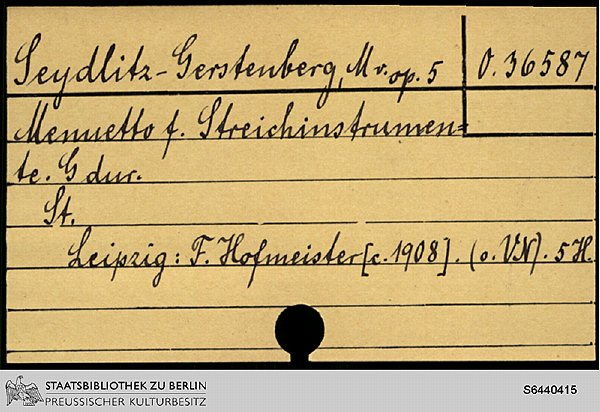 Seydlitz-Gerstenberg, M v. op. 5
O. 36587
Menuetto f. Streichinstrumen=
te. G dur.
St.
Leipzig: F. Hofmeister [c. 1908]. (o. VN). 5 H.
STAATSBIBLIOTHEK ZU BERLIN
PREUSSISCHER KULTURBESITZ
S6440415